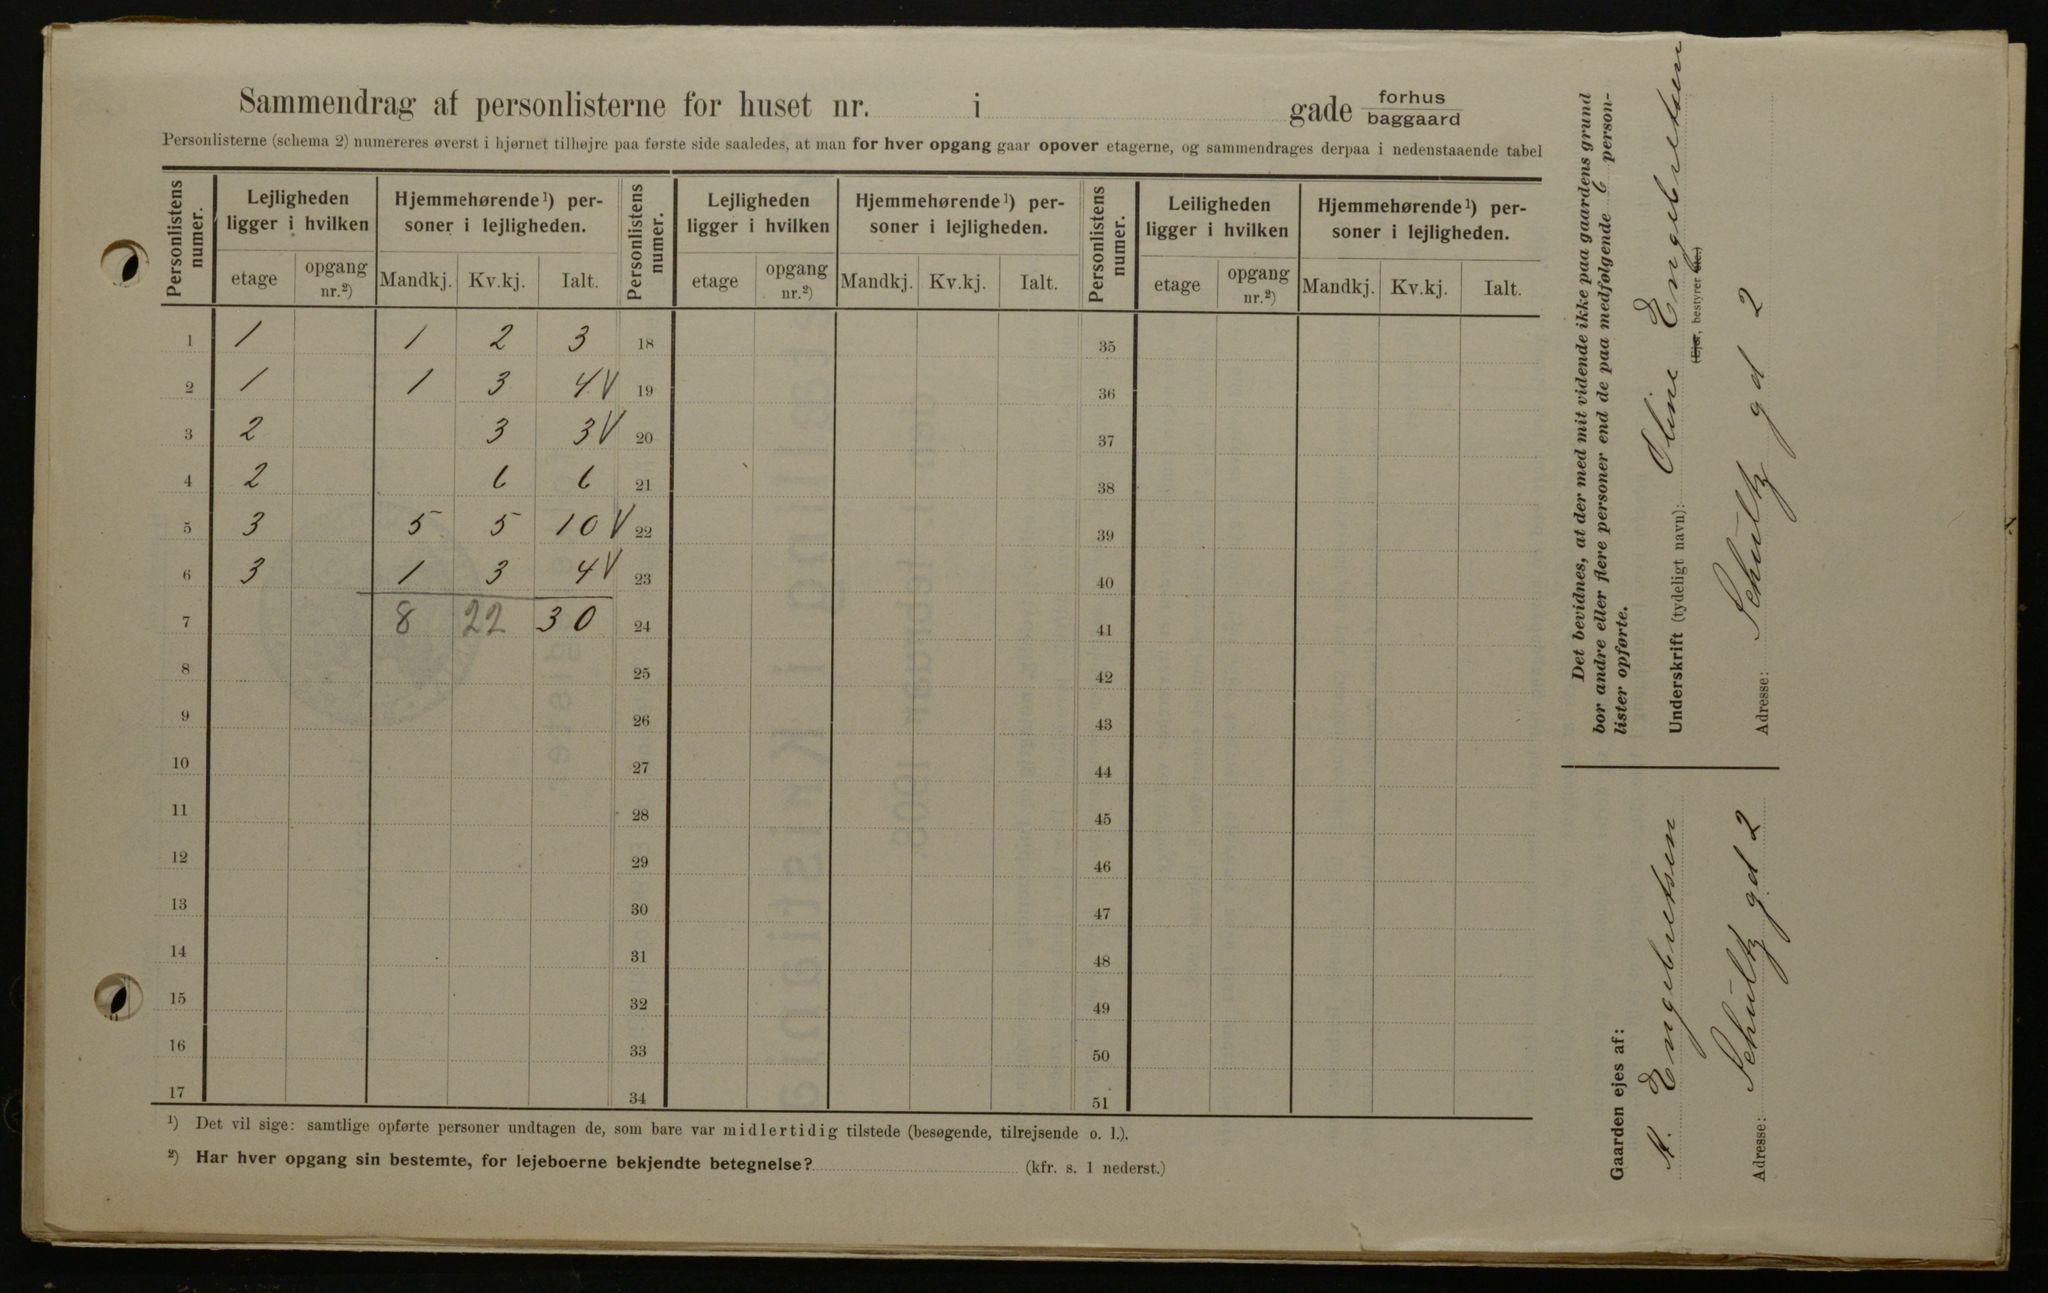 Sammendrag af personlisterne for huset nr. i gade forhus baggaard
Personlisterne (schema 2) numereres øverst i hjørnet tilhøjre paa første side saaledes, at man for hver opgang gaar opover etagerne, og sammendrages derpaa i nedenstaaende tabel
Personlistens numer. Lejligheden ligger i hvilken Hjemmehørende¹) personer i lejligheden. Personlistens numer. Lejligheden ligger i hvilken Hjemmehørende¹) personer i lejligheden. Personlistens numer. Leiligheden ligger i hvilken Hjemmehørende¹) personer i lejligheden.
etage opgang nr.²) Mandkj. Kv.kj. Ialt. etage opgang nr.²) Mandkj. Kv.kj. Ialt. etage opgang nr.²) Mandkj. Kv.kj. Ialt.
1 1 1 2 3 18 35
2 1 1 3 4 V 19 36
3 2 3 3 V 20 37
4 2 6 6 21 38
5 3 5 5 10 V 22 39
6 3 1 3 4 V 23 40
7 8 22 30 24 41
8 25 42
9 26 43
10 27 44
11 28 45
12 29 46
13 30 47
14 31 48
15 32 49
16 33 50
17 34 51
¹) Det vil sige: samtlige opførte personer undtagen de, som bare var midlertidig tilstede (besøgende, tilrejsende o. l.).
²) Har hver opgang sin bestemte, for lejeboerne bekjendte betegnelse? (kfr. s. 1 nederst.)
Det bevidnes, at der med mit vidende ikke paa gaardens grund
bor andre eller flere personer end de paa medfølgende 6 person-
lister opførte.
Underskrift (tydeligt navn): Oline Engebretsen
(Ejer, bestyrer etc.)
Adresse: Schultz gd 2
Gaarden ejes af:
Engebretsen
Adresse: Schultz gd 2